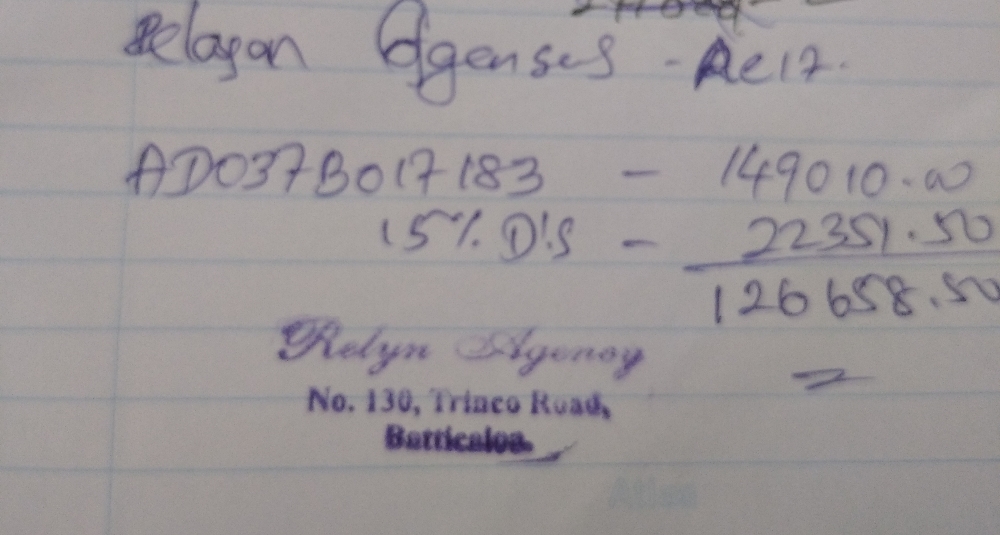 Relagon Agenses - Ae 17.
AD037B017183 - 149010.00
15% D'S - 22351.50
126658.50
=
Relyn Agency
No. 130, Trinco Road,
Batticaloa.
Atlas